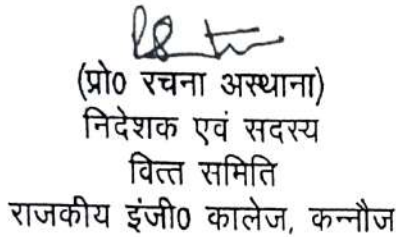 (प्रो0 रचना अस्थाना)
निदेशक एवं सदस्य
वित्त समिति
राजकीय इंजी0 कालेज, कन्नौज